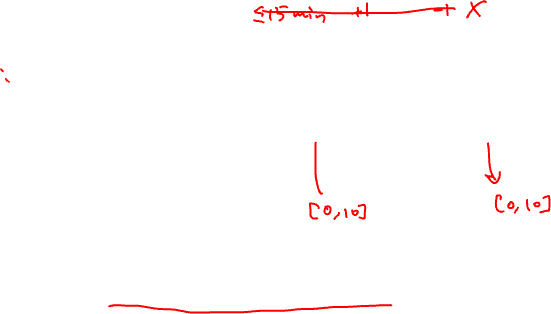 ≤15min X
[0,10] [0,10]